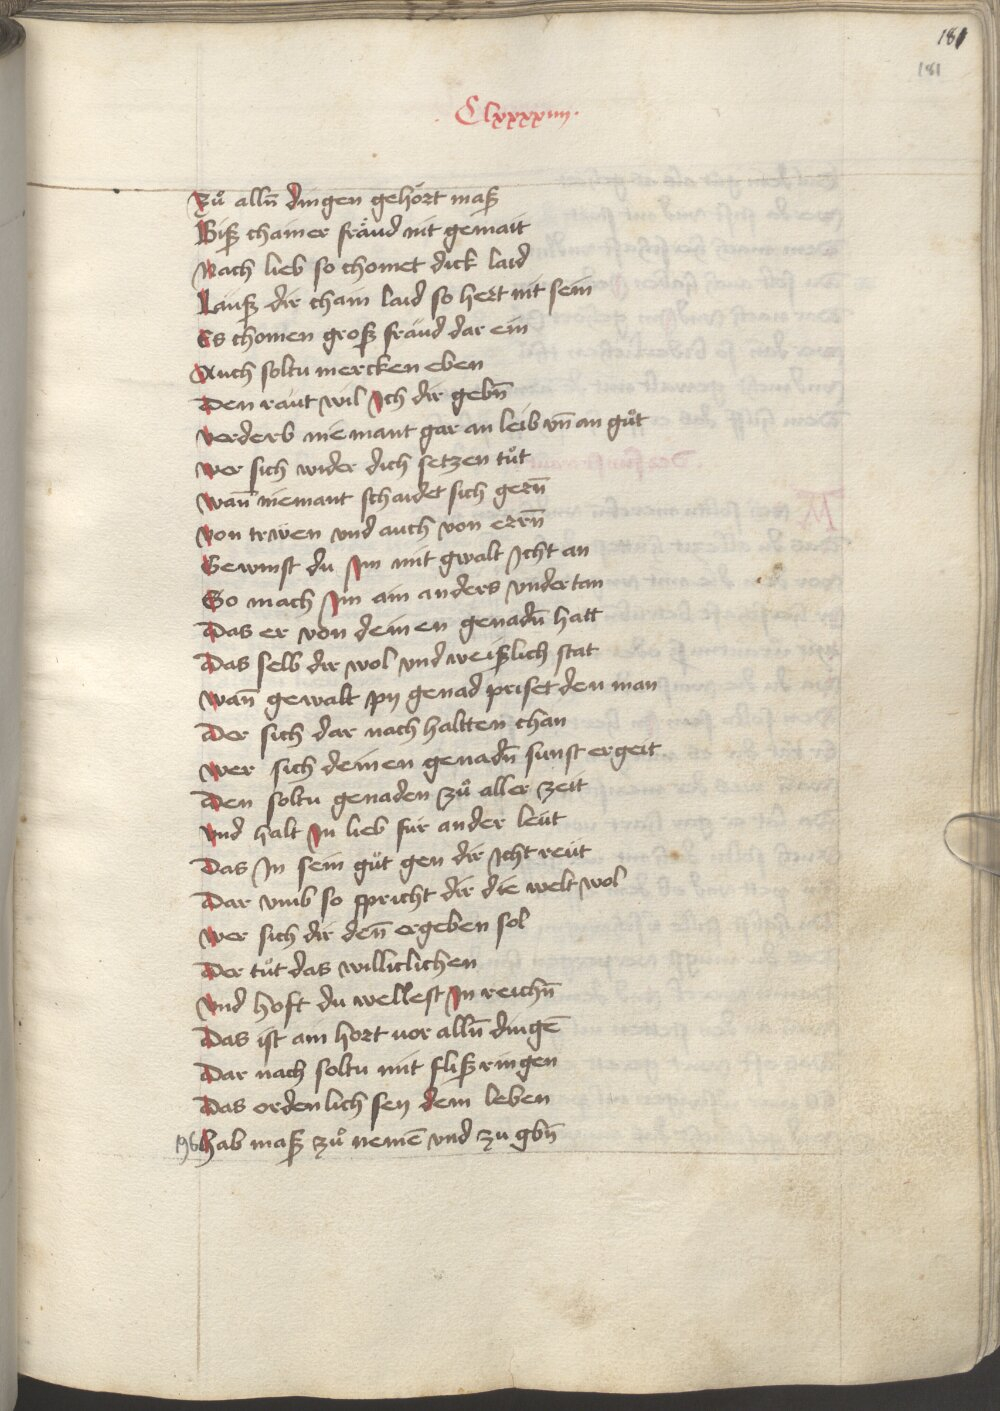 181
181
· Clxxxxiiii ·
Zů alln̄ dingen gehört maß
Biß chainer fräud nit gemait
Nach lieb so chomet dick laid
Lauß dir chain laid so hert nit sein
Es chomen groß fräud dar ein
Auch soltu mercken eben
Den raut wil Ich dir gebn̄
Verderb niemant gar an leib vn̄ an gůt
Wer sich wider dich setzen tůt
Wan̄ niemant schaidet sich gern̄
Von trwen vnd auch von ern̄
Gewinst du Im mit gwalt Icht an
So mach Im ain anders vndertan
Das er von deinen genadn̄ hatt
Das selb dir wol vnd weißlich stat
Wan̄ gewalt py genad priset den man
Der sich dar nach haltten chan
Wer sich deinen genadn̄ sunst ergeit
Den soltu genaden zů aller zeit
Vnd halt In lieb für ander leüt
Das In sein gůt gen dir Icht reüt
Dar vmb so spricht dir die welt wol
Wer sich dir den̄ ergeben sol
Der tůt das williclichen
Vnd hoft du wellest In reichn̄
Das ist ain hort vor alln̄ dingē
Dar nach soltu mit fliß ringen
Das ordenlich sey dein leben
Hab maß zů nemē vnd zu gbn̄